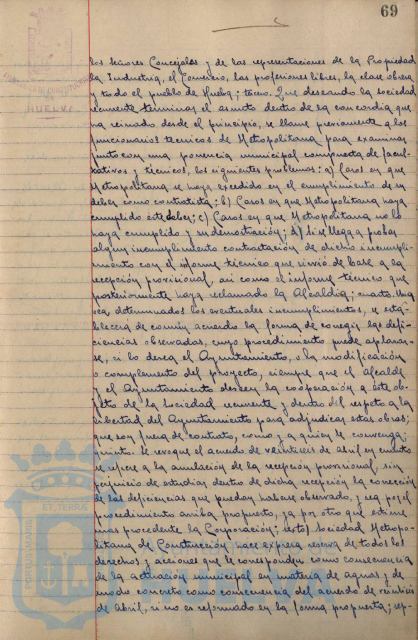 69
HUELVA
los señores Concejales y de las representaciones de la Propiedad
la Industria, el Comercio, las profesiones libres, la clase obrera
y todo el pueblo de Huelva; tercero. Que deseando la Sociedad
recurrente terminar el asunto dentro de la concordia que
ha reinado desde el principio, se llame previamente a los
funcionarios tecnicos de Metropolitana para examinar
junto con una ponencia municipal compuesta de facul-
tativos y tecnicos, los siguientes problemas: a) Casos en que
Metropolitana se haya excedido en el cumplimiento de su
deber como contratista; b) Casos en que Metropolitana haya
cumplido este deber; c) Casos en que Metropolitana no lo
haya cumplido y su demostración; d) Si se llega a probar
algun incumplimiento contrastacion de dicho incumpli-
miento con el informe técnico que sirvió de base a la
recepción provisional, asi como el informe técnico que
posteriormente haya reclamado la Alcaldia; cuarto. Una
vez determinados los eventuales incumplimientos, se esta-
blecerá de común acuerdo la forma de corregir las defi-
ciencias observadas, cuyo procedimiento puede aplazar-
se, si lo desea el Ayuntamiento, o la modificación
o complemento del proyecto, siempre que el Alcalde
y el Ayuntamiento deseen la cooperación a este ob-
jeto de la Sociedad recurrente y dentro del respeto a la
libertad del Ayuntamiento para adjudicar estas obras;
que son fuera de contrato, como y a quien le convenga;
quinto. Se revoque el acuerdo de veintiseis de abril en cuanto
se refiere a la anulación de la recepción provisional, sin
perjuicio de estudiar dentro de dicha recepción la corrección
de las deficiencias que puedan haberse observado, ya sea por el
procedimiento arriba propuesto, ya por otro que estime
mas procedente la Corporación; sexto) Sociedad Metropo-
litana de Construcción hace expresa reserva de todos los
derechos y acciones que le correspondan como consecuencia
de la actuación municipal en materia de aguas y de
modo concreto como consecuencia del acuerdo de veintiseis
de Abril, si no es reformado en la forma propuesta; sép-